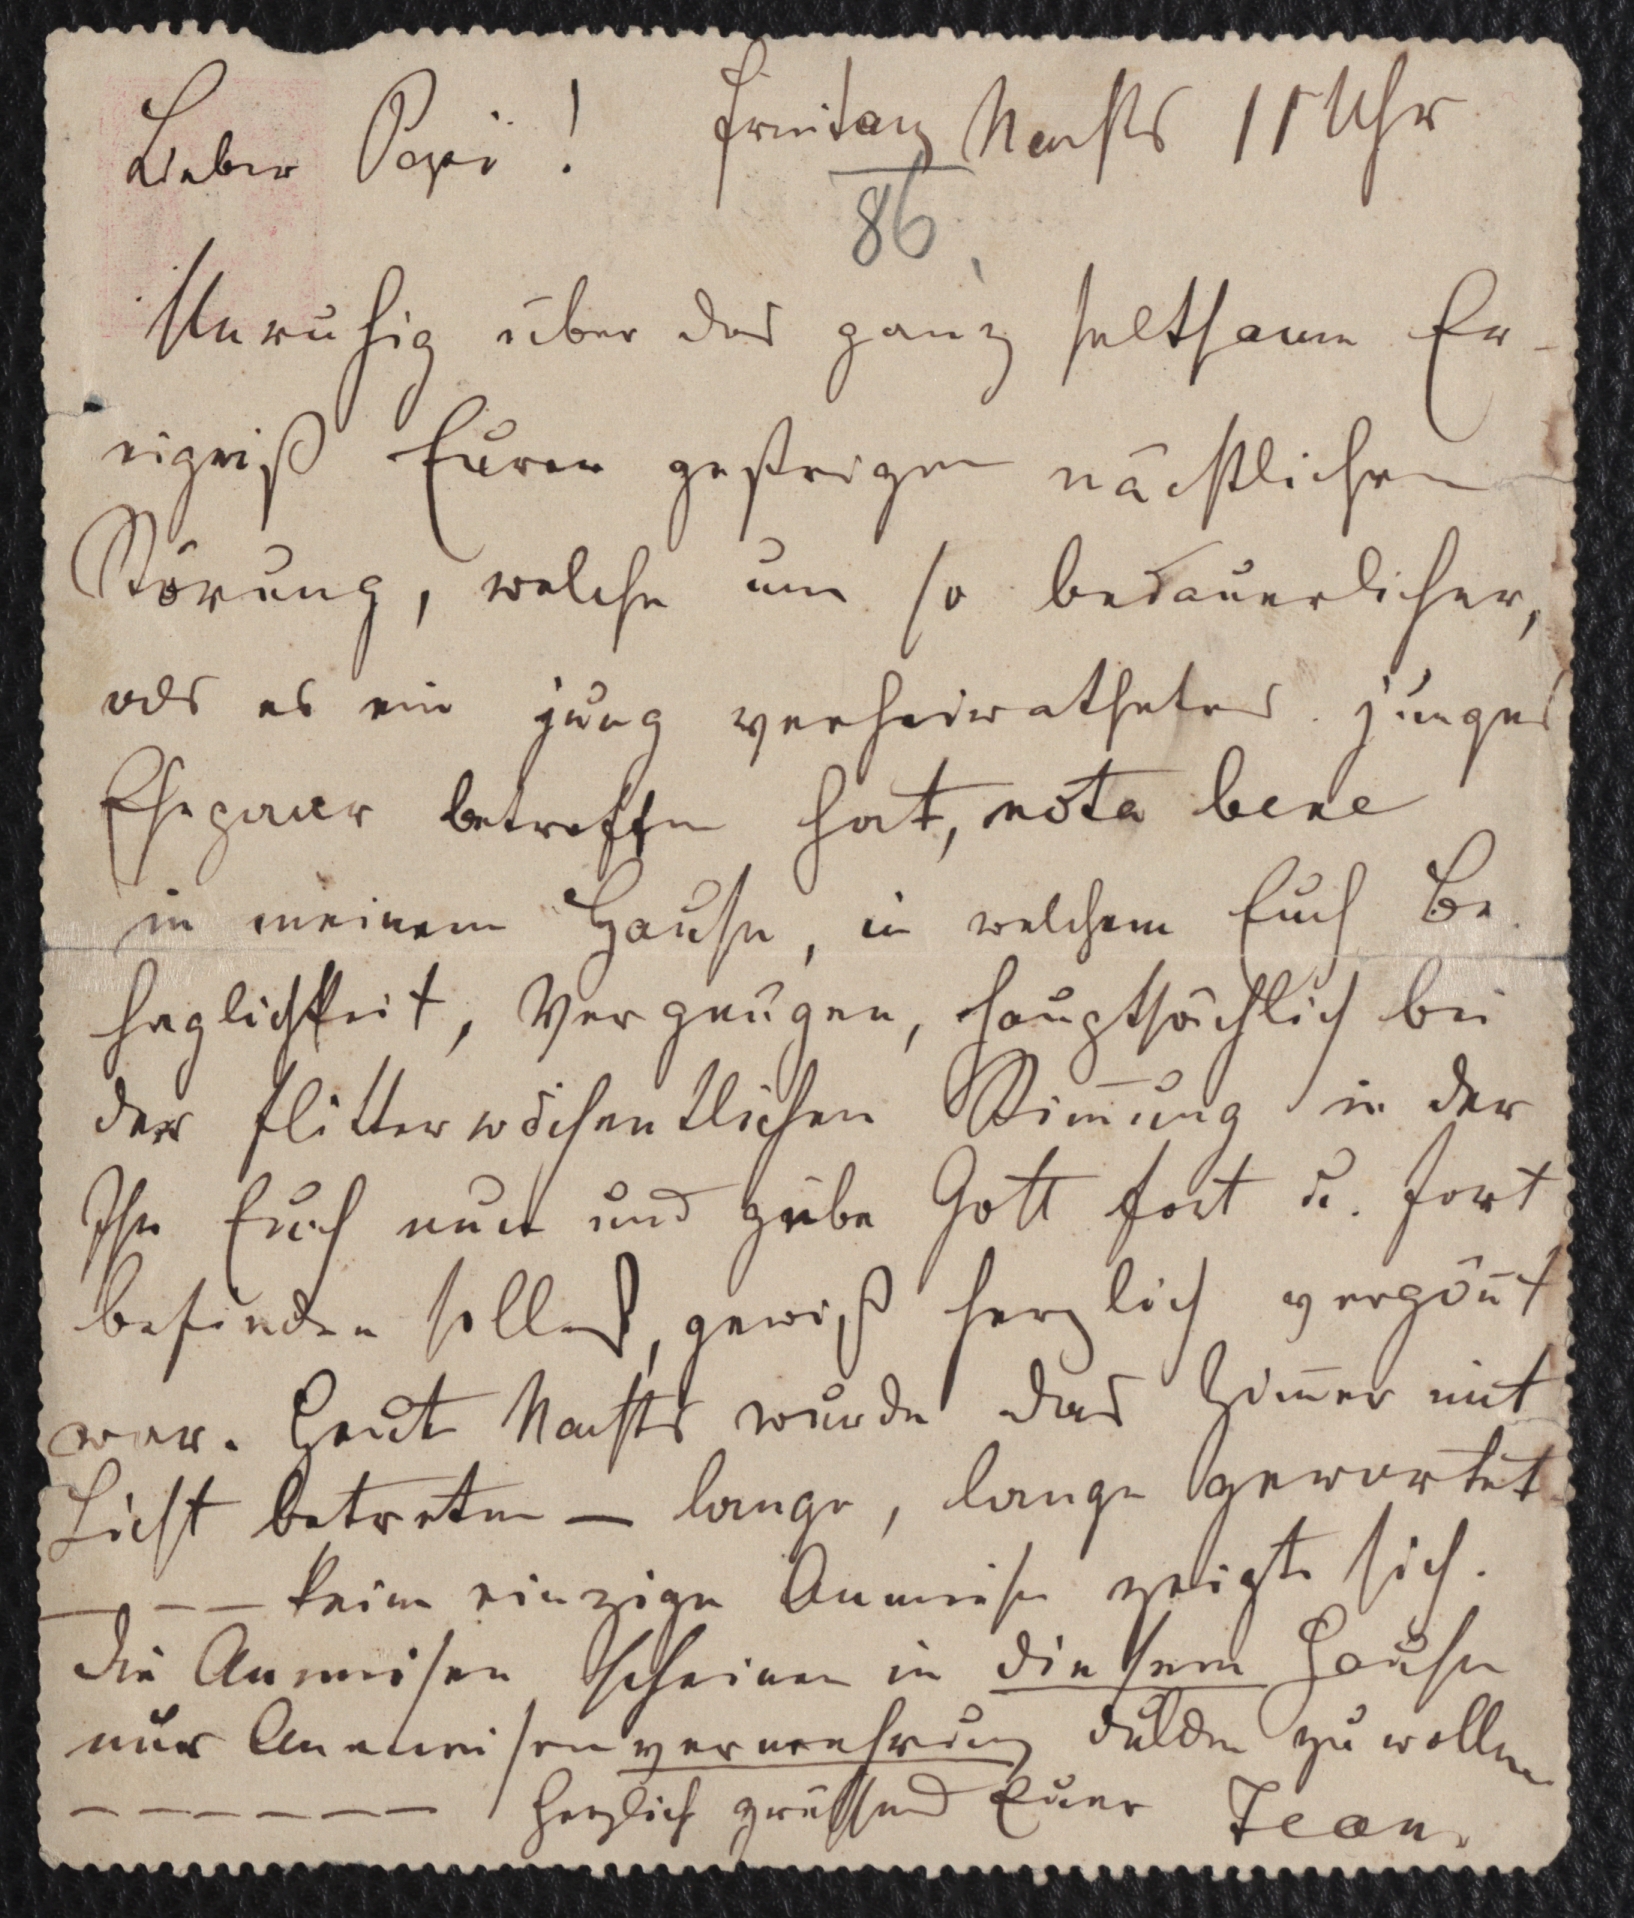 Lieber Pepi! Freitag Nachts 11 Uhr
86
Unruhig über das ganz seltsame Er-
eigniß Eurer gestrigen nächtlichen
Störung, welche um so bedauerlicher,
als es ein jung verheirathetes junges
Ehepaar betroffen hat, nota bene
in meinem Hause, in welchem Euch Be
haglichkeit, Vergnügen, hauptsächlich bei
der flitterwöchentlichen Stim̄ung in der
Ihr Euch nun und gebe Gott fort u. fort
befinden sollet, gewiß herzlich vergön̄t
war. Heut Nachts wurde das Zim̄er mit
Licht betreten — lange, lange gewartet
— — — keine einzige Ammeise zeigte sich.
Die Ammeisen scheinen in diesem Hause
nur Ammeisenvermehrung dulden zu wollen
— — — — — — Herzlich grüssend Euer Jean.